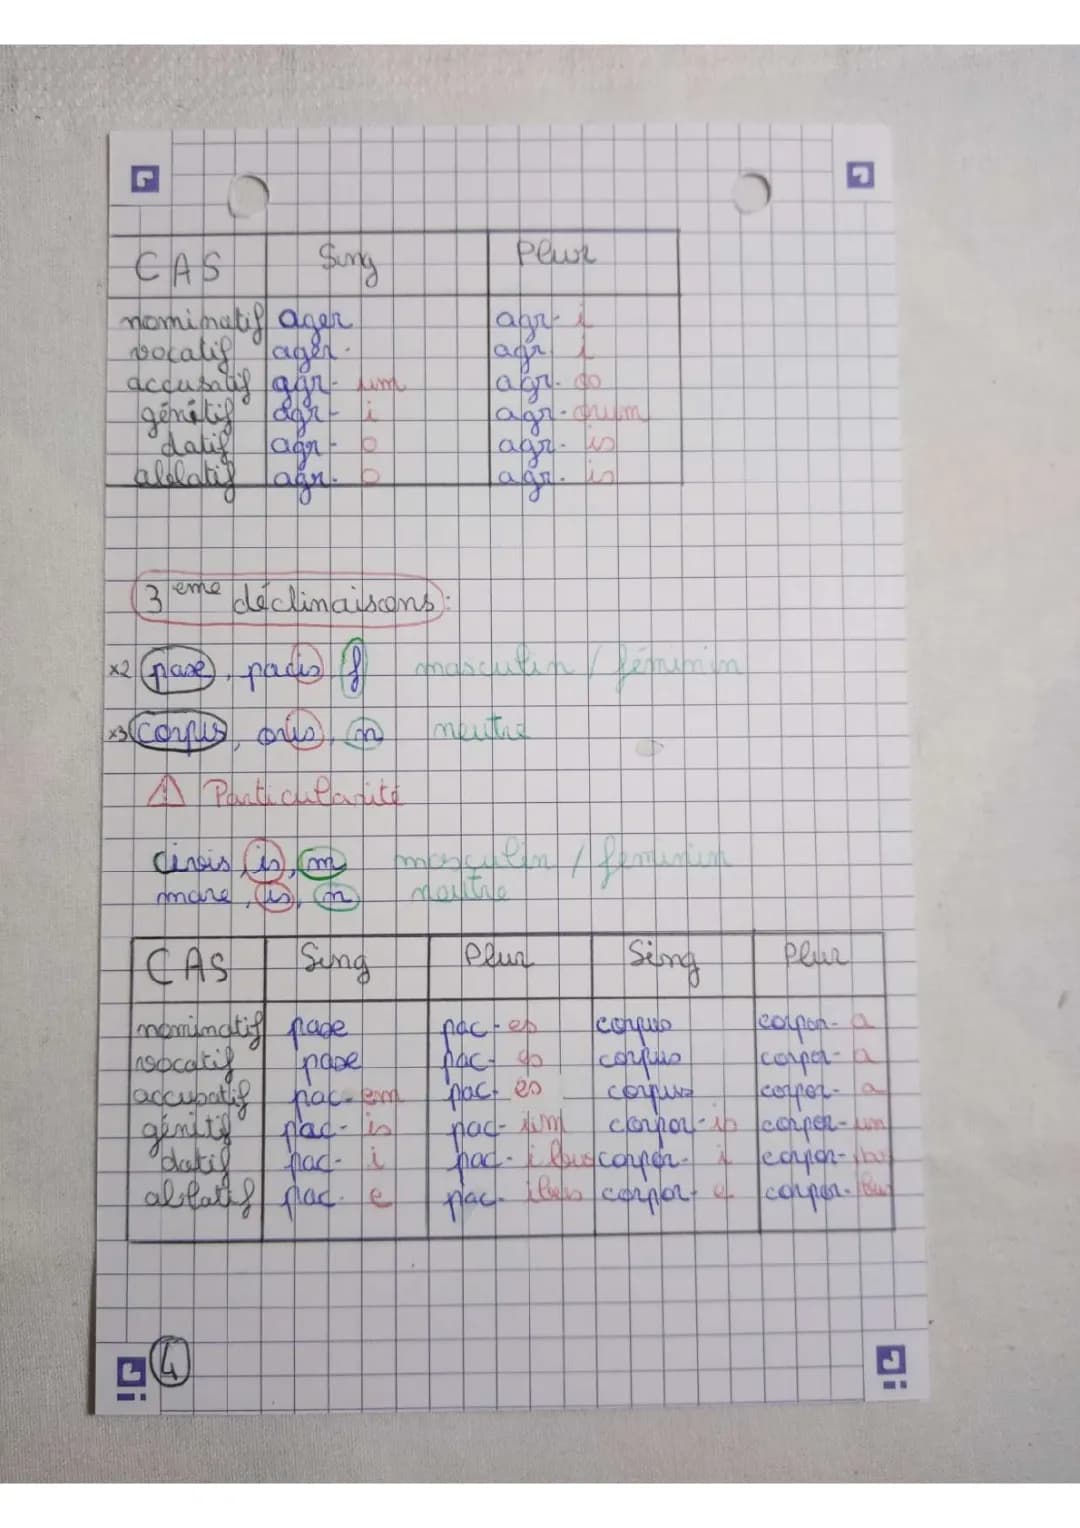 CAS Sing Plur
nominatif ager agr- i
vocatif ager. agr i
accusatif agr- um agr. do
génitif agr- i agr- orum
datif agr- o agr- is
ablatif agr. o agr. is
3 eme déclinaisons:
x2 pase, pacis, f masculin / féminin
x3 corpus, oris, n neutre
⚠ Particularité
civis, is, m masculin / feminin
mare, is, n neutre
CAS Sing Plur Sing Plur
nominatif pase pac- es corpus corpor- a
vocatif pase pac- es corpus corpor- a
accusatif pac- em pac- es corpus corpor- a
génitif pac- is pac- um corpor- is corpor- um
datif pac- i pac- ibus corpor- i corpor-
ablatif pac. e pac- ibus corpor- e corpor-
4